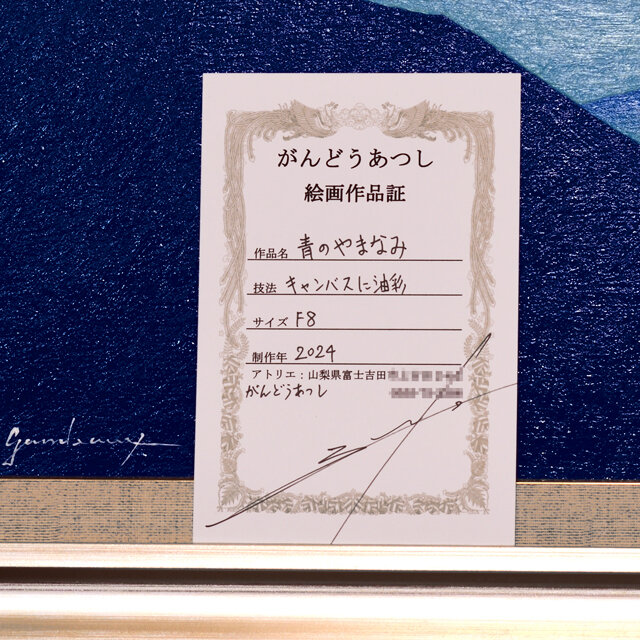 がんどうあつし
絵画作品証
作品名 青のやまなみ
技法 キャンバスに油彩
サイズ F8
制作年 2024
アトリエ：山梨県富士吉田
がんどうあつし